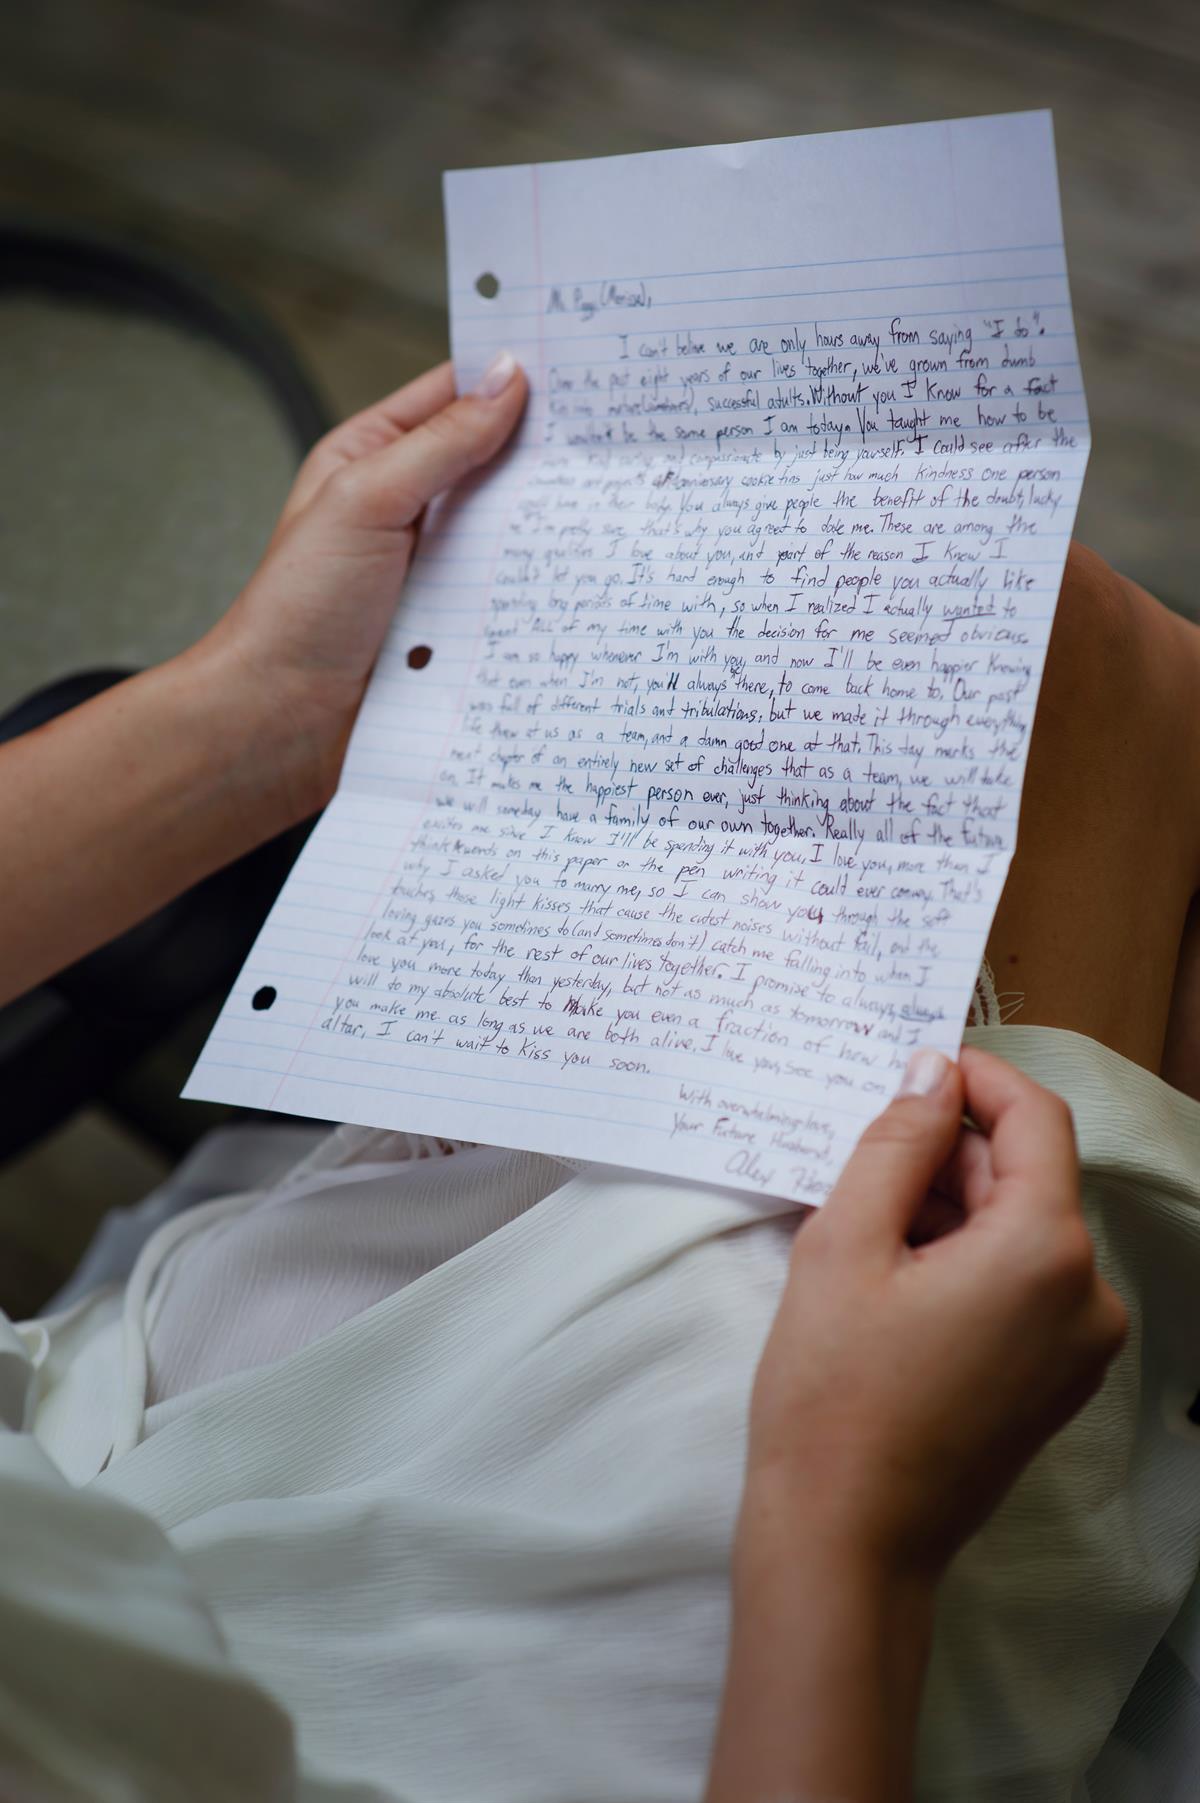 I can't believe we are only hours away from saying "I do".
Over the past eight years of our lives together, we've grown from dumb
successful adults. Without you I know for a fact
I wouldn't be the same person I am today. You taught me how to be
more kind caring and compassionate by just being yourself. I could see after the
countless art projects anniversary cookie tins just how much kindness one person
could have in their body. You always give people the benefit of the doubt, lucky
me I'm pretty sure that's why you agreed to date me. These are among the
many qualities I love about you, and part of the reason I knew I
couldn't let you go. It's hard enough to find people you actually like
spending long periods of time with, so when I realized I actually wanted to
spend ALL of my time with you the decision for me seemed obvious.
I am so happy whenever I'm with you, and now I'll be even happier knowing
that even when I'm not, you'll always be there, to come back home to. Our past
was full of different trials and tribulations, but we made it through everything
life threw at us as a team, and a damn good one at that. This day marks the
next chapter of an entirely new set of challenges that as a team, we will take
on. It makes me the happiest person ever, just thinking about the fact that
we will someday have a family of our own together. Really all of the future
excites me since I know I'll be spending it with you. I love you, more than I
think words on this paper or the pen writing it could ever convey. That's
why I asked you to marry me, so I can show you through the soft
touches, those light kisses that cause the cutest noises without fail, and the
loving gazes you sometimes do (and sometimes don't) catch me falling into when I
look at you, for the rest of our lives together. I promise to always, always
love you more today than yesterday, but not as much as tomorrow and I
will do my absolute best to make you even a fraction of how
you make me as long as we are both alive. I love you, see you on
altar, I can't wait to kiss you soon.
With overwhelming love,
Your Future Husband,
Alex